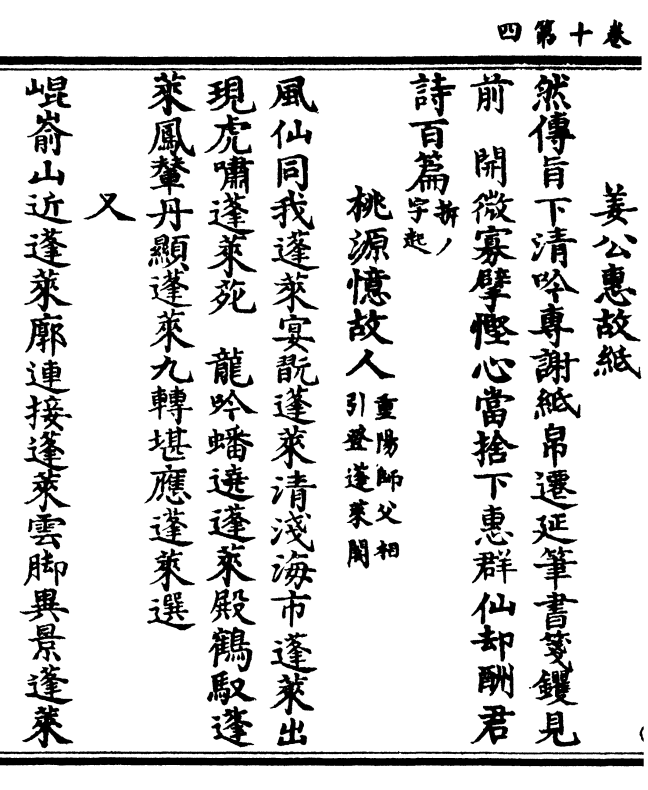 卷十第四
姜公惠故紙
然傳旨下清吟專謝紙帛遷延筆書箋钁見
前　開微寡擘慳心當捨下惠群仙却酬君
詩百篇拆丿字起
桃源憶故人重陽師父相引登蓬萊閣
風仙同我蓬萊宴翫蓬萊清淺海市蓬萊出
現虎嘯蓬萊苑　龍吟蟠遶蓬萊殿鶴馭蓬
萊鳳輦丹顯蓬萊九轉堪應蓬萊選
又
崐嵛山近蓬萊廓連接蓬萊雲脚異景蓬萊